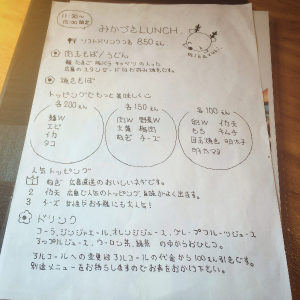 11:30〜
15:00限定
みかづきLUNCH
ソフトドリンクつき 850えん
肉玉そば/うどん
麺 たまご 豚バラ キャベツ の入った
広島のスタンダードなお好み焼きです。
焼きそば
トッピングでもっと美味しく
各200えん 各150えん 各100えん
麺W 肉W 野菜W 卵W イカ天
エビ 大葉 豚肉 もち
イカ ねぎ チーズ
タコ
人気トッピング
1 ねぎ 広島直送のおいしいネギです。
2 イカ天 広島で人気のトッピング
3 チーズ
ドリンク
コーラ、ジンジャエール、オレンジジュース、グレープフルーツジュース
アップルジュース、ウーロン茶、緑茶 の中からおひとつ。
アルコールへの変更はアルコールの代金から100えん引きです。
別途メニューをお持ちしますのでお声をおかけ下さい。